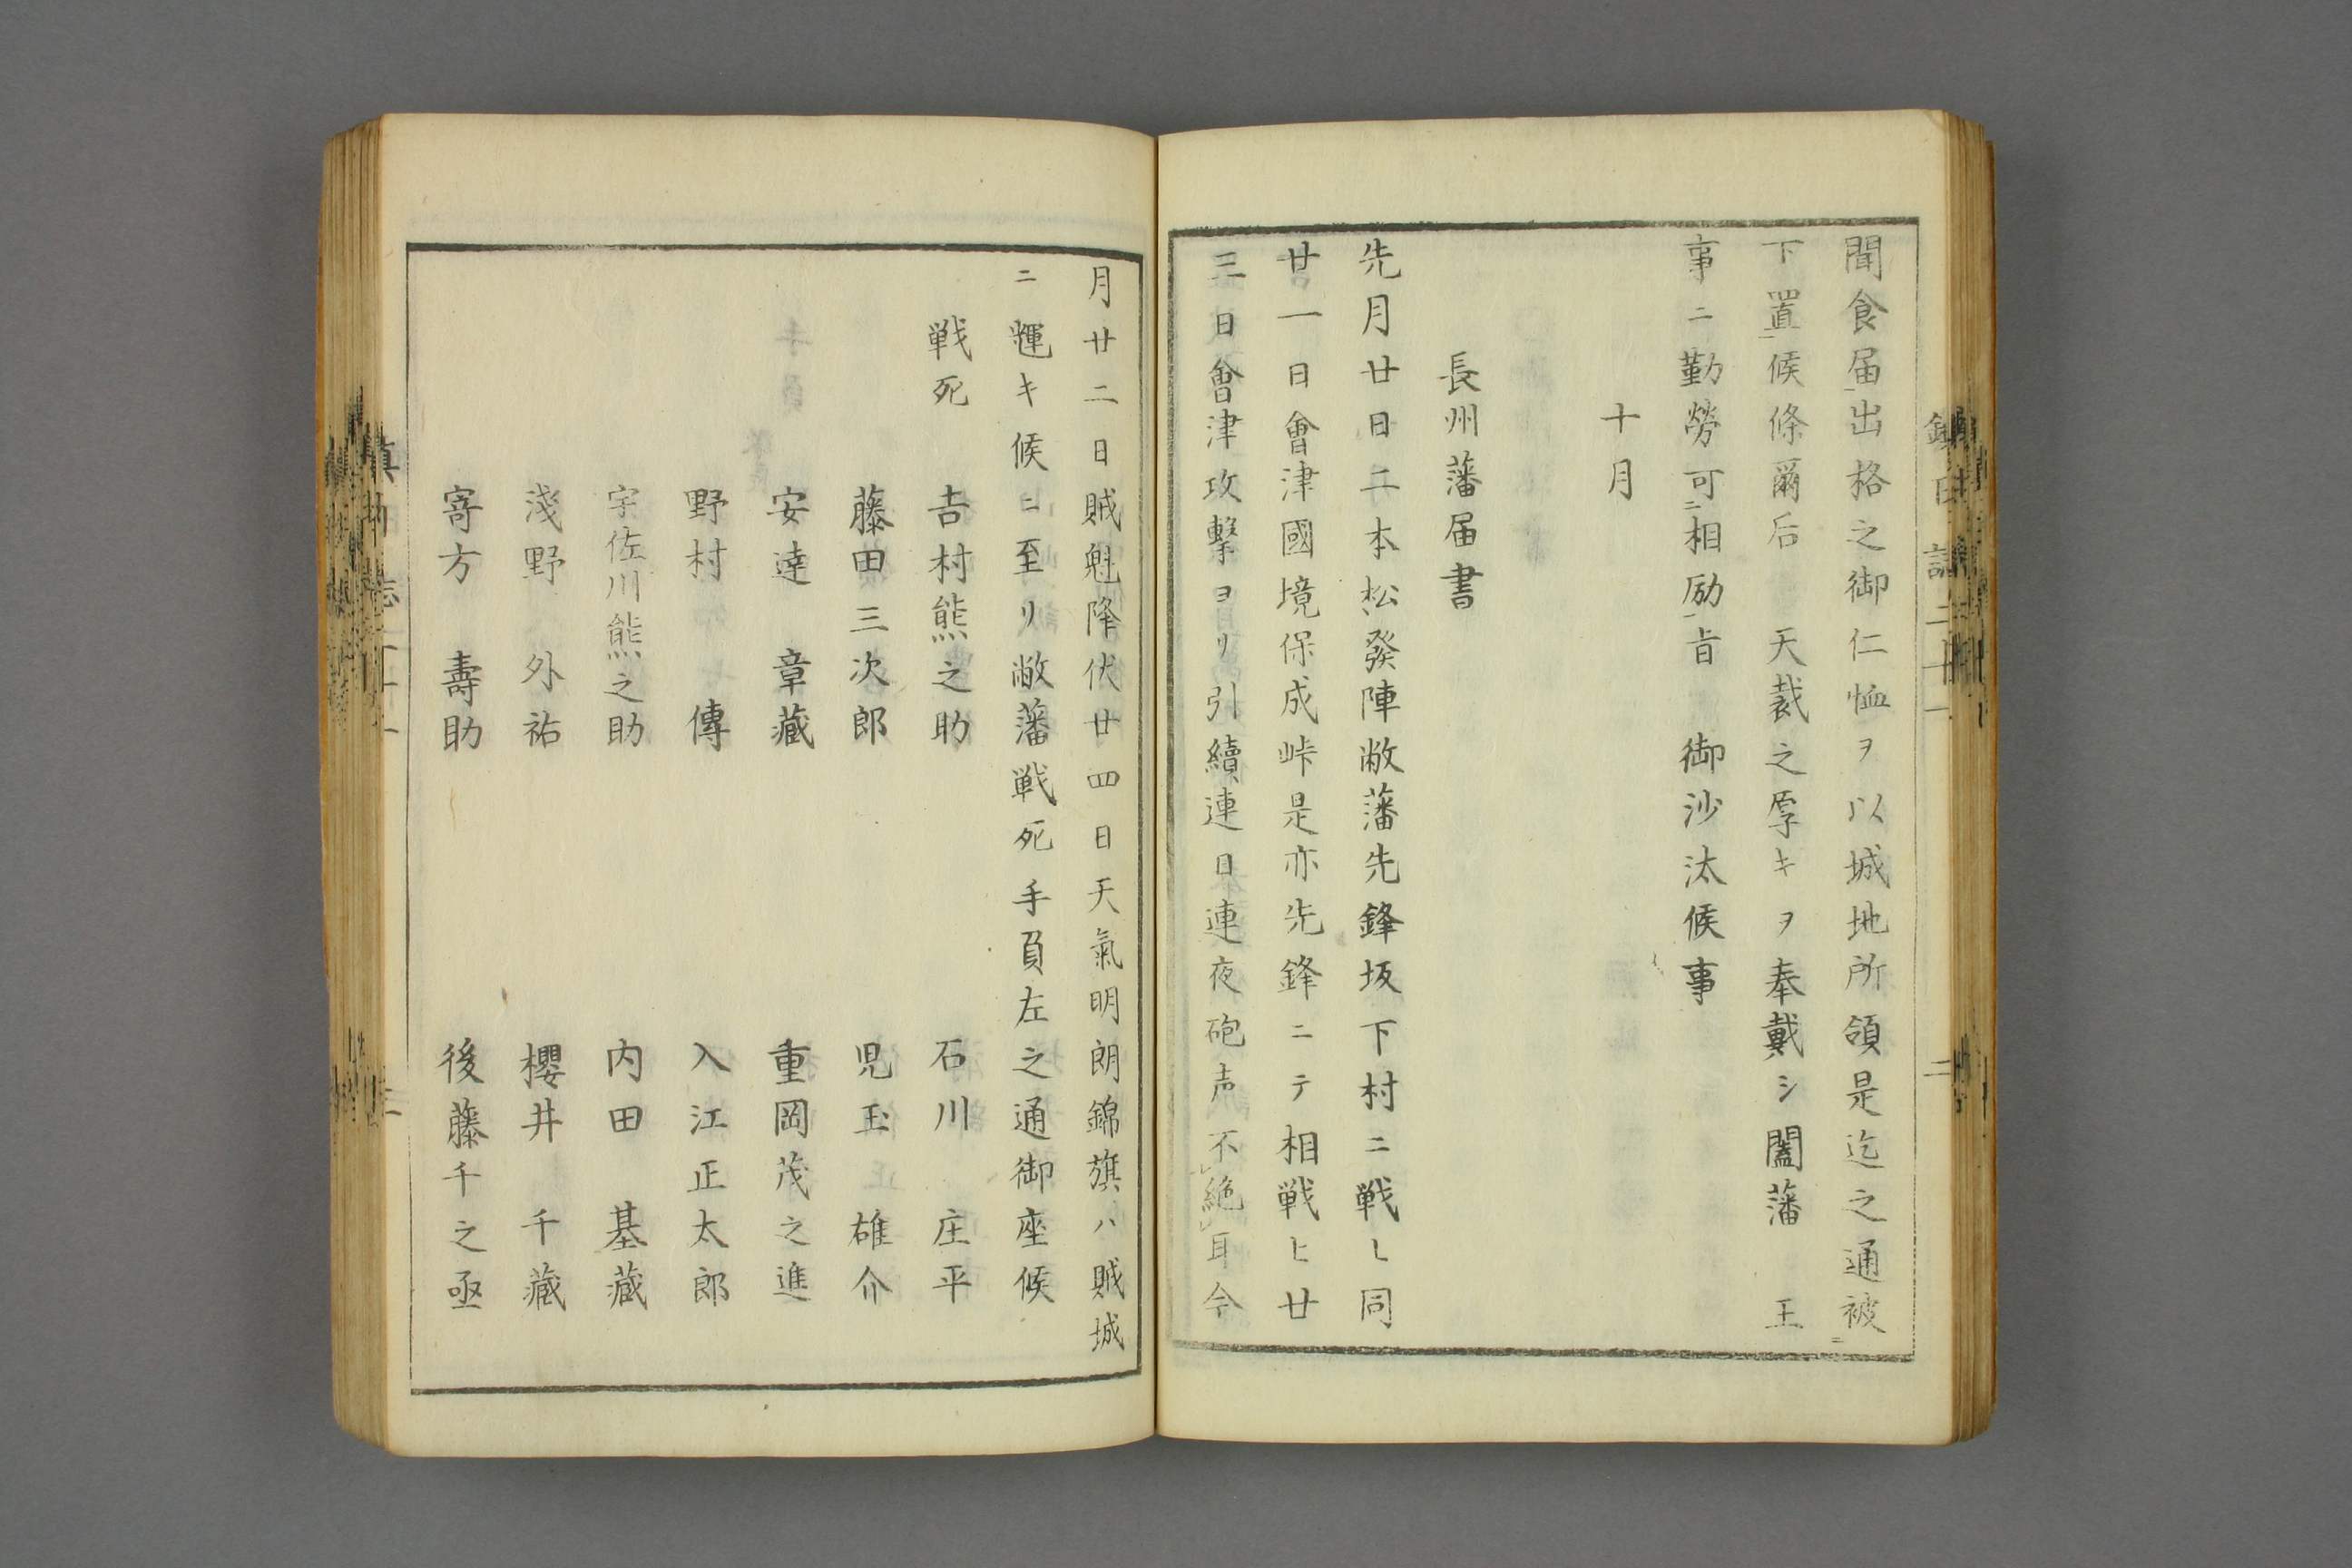 聞食届出格之御仁恤ヲ以城地所領是迄之通被
下置候條爾后　天裁之厚キヲ奉戴シ闔藩　王
事ニ勤勞可相励旨　御沙汰候事
十月
長州藩届書
先月廿日二本松發陣敝藩先鋒坂下村ニ戦ヒ同
廿一日會津國境保成峠是亦先鋒ニテ相戦ヒ廿
三日會津攻撃ヨリ引續連日連夜砲声不絶耳今
月廿二日賊魁降伏廿四日天氣明朗錦旗ハ賊城
ニ輝キ候ニ至リ敝藩戦死手負左之通御座候
戦死　吉村熊之助　石川　庄平
藤田三次郎　児玉　雄介
安達　章藏　重岡茂之進
野村　傳　入江正太郎
宇佐川熊之助　内田　基藏
淺野　外祐　櫻井　千藏
寄方　壽助　後藤千之亟